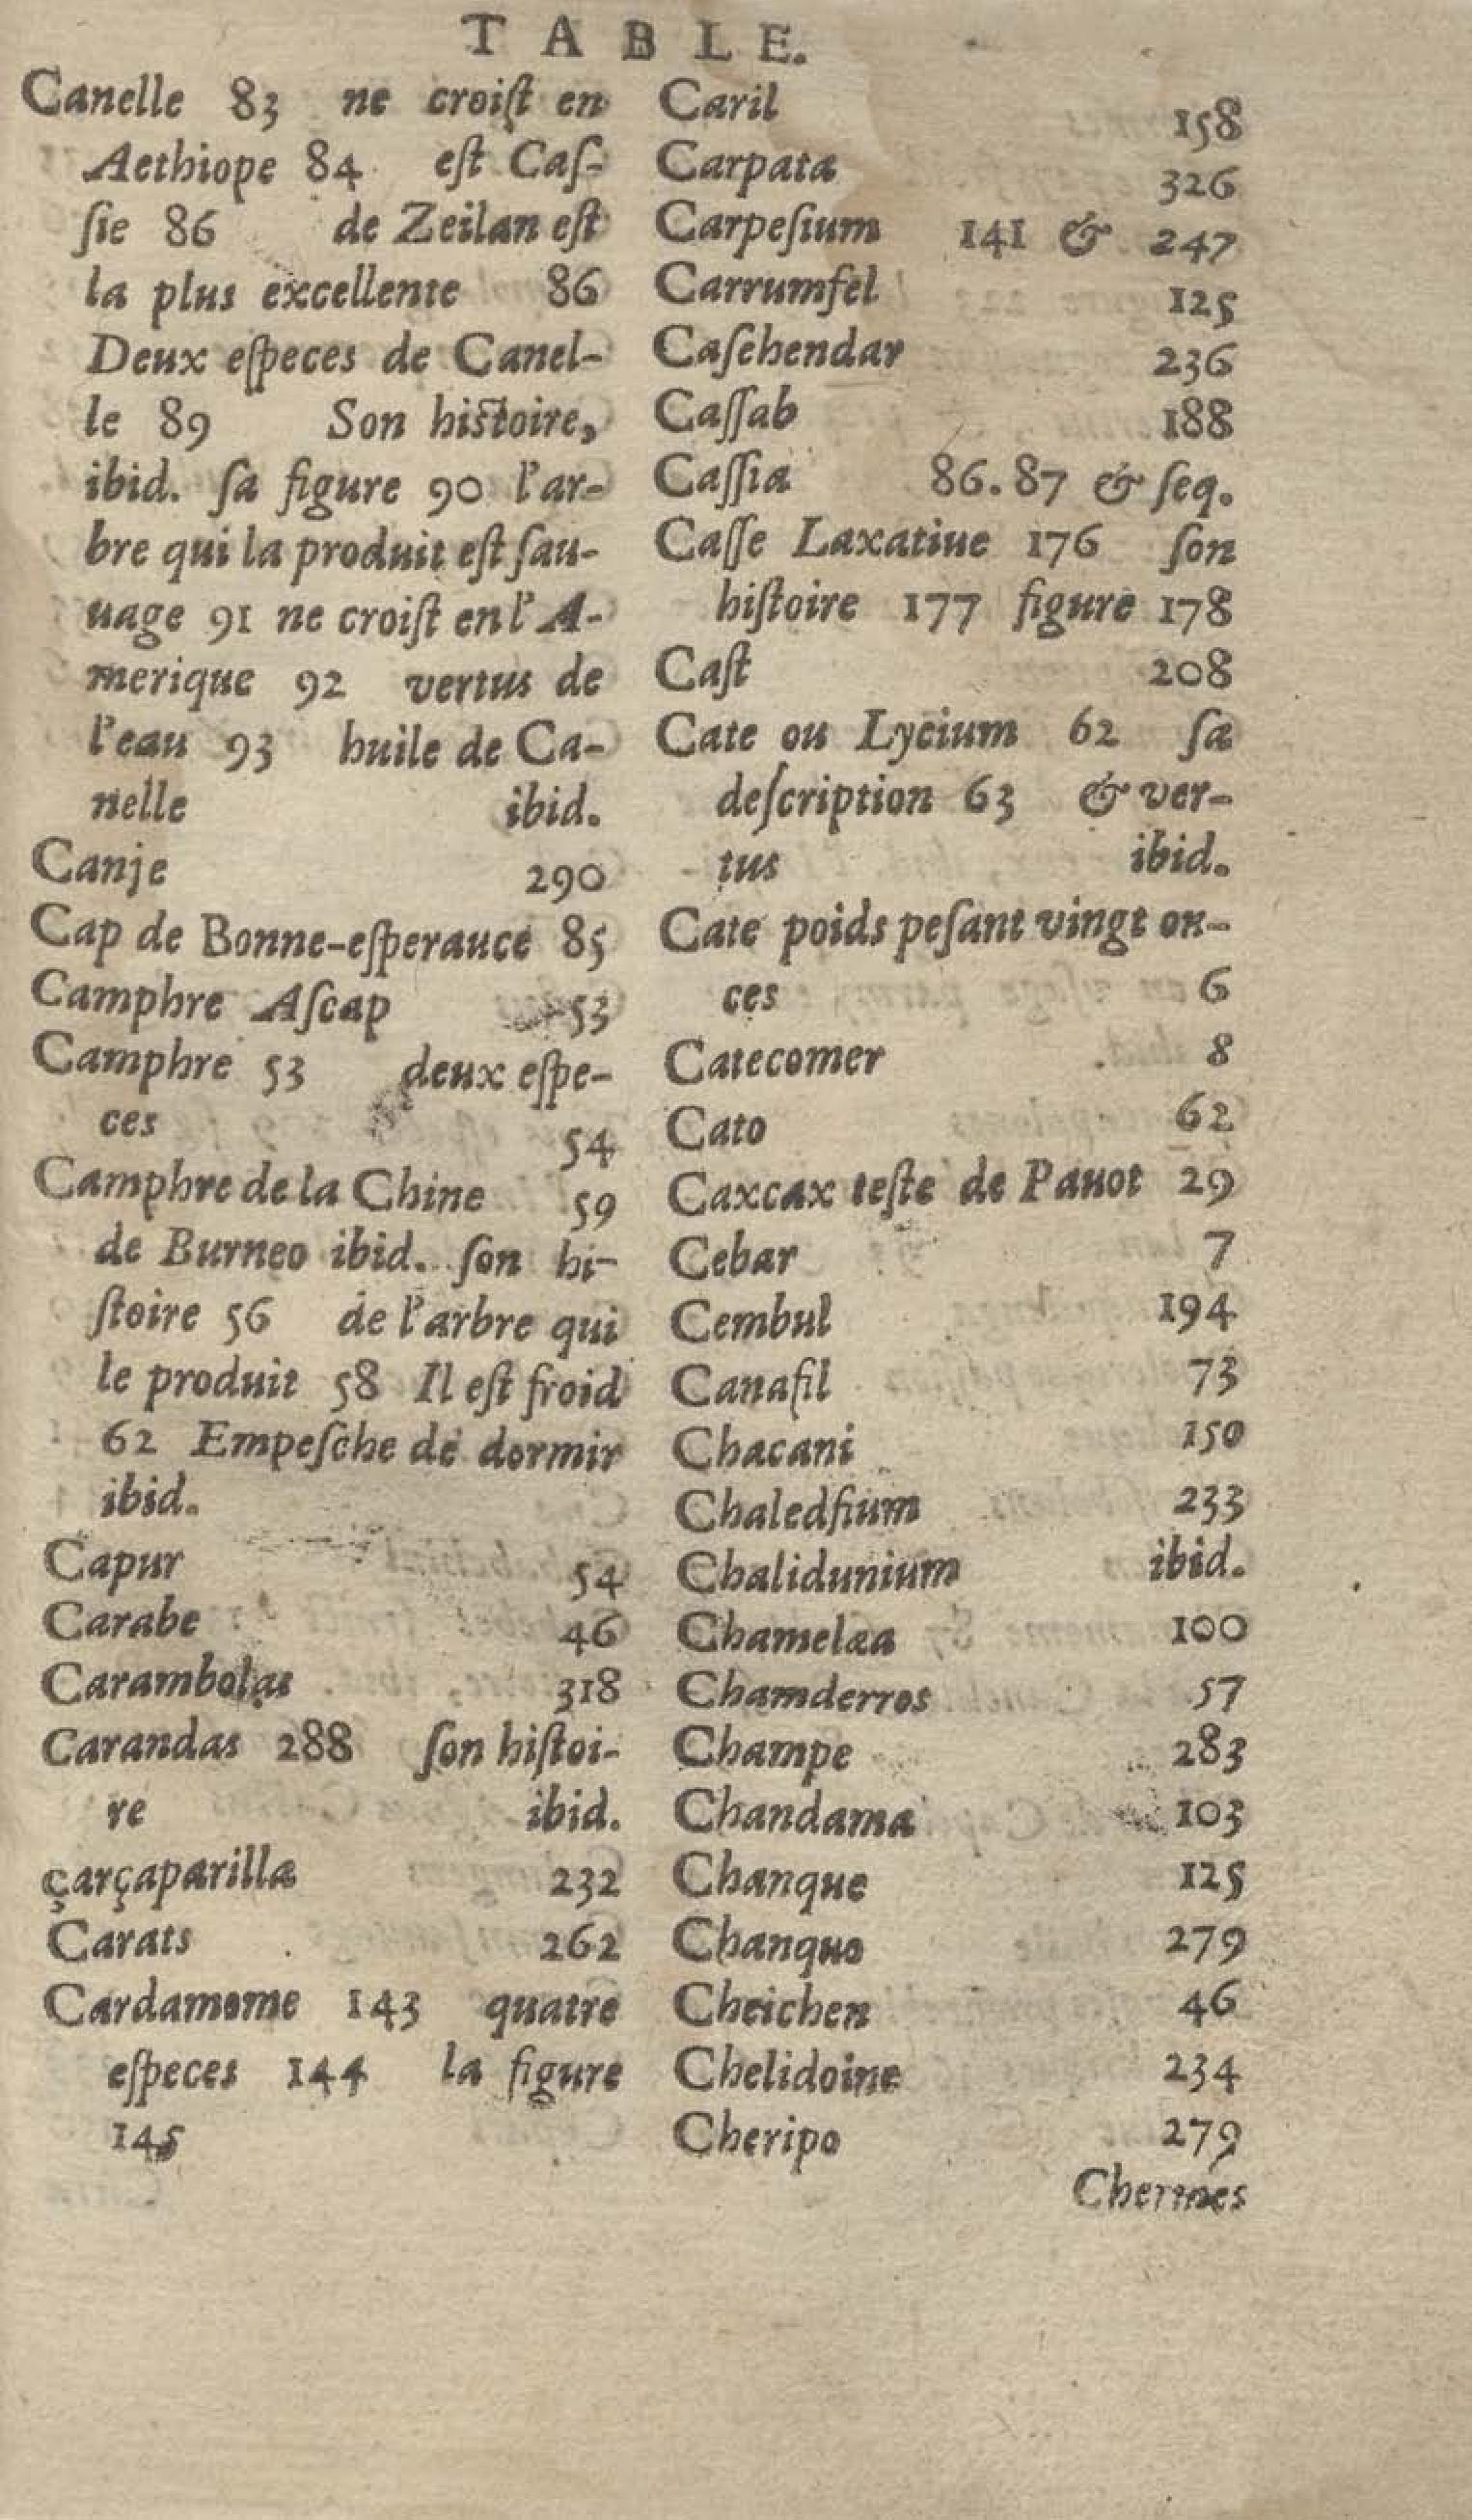 TABLE.
Canelle 83 ne croiſt en
Aethiope 84 eſt Caſ-
ſie 86 de Zeilan eſt
la plus excellente 86
Deux eſpeces de Canel-
le 89 Son histoire,
ibid. ſa figure 90 l'ar-
bre qui la produit eſt ſau-
uage 91 ne croiſt en l'A-
merique 92 vertus de
l'eau 93 huile de Ca-
nelle ibid.
Canje 290
Cap de Bonne-eſperauce 85
Camphre Aſcap 53
Camphre 53 deux eſpe-
ces 54
Camphre de la Chine 59
de Burneo ibid. ſon hi-
ſtoire 56 de l'arbre qui
le produit 58 Il eſt froid
62 Empeſche de dormir
ibid.
Capur 54
Carabe 46
Carambolas 318
Carandas 288 ſon hiſtoi-
re ibid.
çarçaparilla 232
Carats 262
Cardamome 143 quatre
eſpeces 144 la figure
145
Caril 158
Carpata 326
Carpeſium 141 & 247
Carrumfel 125
Caſehendar 236
Caſſab 188
Caſſia 86.87 & ſeq.
Caſſe Laxatiue 176 ſon
hiſtoire 177 figure 178
Caſt 208
Cate ou Lycium 62 ſa
deſcription 63 & ver-
tus ibid.
Cate poids peſant vingt on-
ces 6
Catecomer 8
Cato 62
Caxcax teſte de Pauot 29
Cebar 7
Cembul 194
Canafil 73
Chacani 150
Chaledfium 233
Chalidunium ibid.
Chamelæa 100
Chamderros 57
Champe 283
Chandama 103
Chanque 125
Chanquo 279
Cheichen 46
Chelidoine 234
Cheripo 279
Chermes